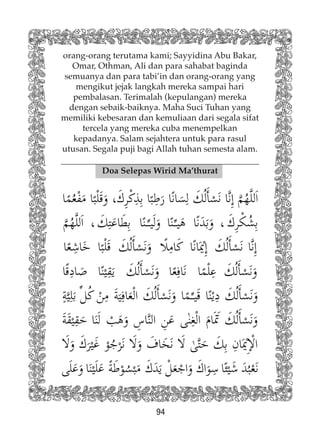 orang-orang terutama kami; Sayyidina Abu Bakar,
Omar, Othman, Ali dan para sahabat baginda
semuanya dan para tabi’in dan orang-orang yang
mengikut jejak langkah mereka sampai hari
pembalasan. Terimalah (kepulangan) mereka
dengan sebaik-baiknya. Maha Suci Tuhan yang
memiliki kebesaran dan kemuliaan dari segala sifat
tercela yang mereka cuba menempelkan
kepadanya. Salam sejahtera untuk para rasul
utusan. Segala puji bagi Allah tuhan semesta alam.
Doa Selepas Wirid Ma’thurat
اَللّٰهُمَّ إِنَّا نَسْأَلُكَ لِسَانًا رَطِبًا بِذِكْرِكَ، وَقَلْبًا مُفْعَمًا
بِشُكْرِكَ، وَبَدَنًا هَيِّنًا لَيِّنًا بِطَاعَتِكَ، اَللّٰهُمَّ
إِنَّا نَسْأَلُكَ إِيْمَانًا كَامِلًا وَنَسْأَلُكَ قَلْبًا خَاشِعًا
وَنَسْأَلُكَ عِلْمًا نَافِعًا وَنَسْأَلُكَ يَقِيْنًا صَادِقًا
وَنَسْأَلُكَ دِيْنًا قَيِّمًا وَنَسْأَلُكَ الْعَافِيَةَ مِنْ كُلِّ بَلِيَّةٍ
وَنَسْأَلُكَ تَمَامَ الْغِنٰى عَنِ النَّاسِ وَهَبْ لَنَا حَقِيْقَةَ
الْإِيْمَانِ بِكَ حَتّٰى لَا نَخَافَ وَلَا نَرْجُوْ غَيْرَكَ وَلَا
نَعْبُدَ شَيْئًا سِوَاكَ وَاجْعَلْ يَدَكَ مَبْسُوْطَةً عَلَيْنَا وَعَلَى
94